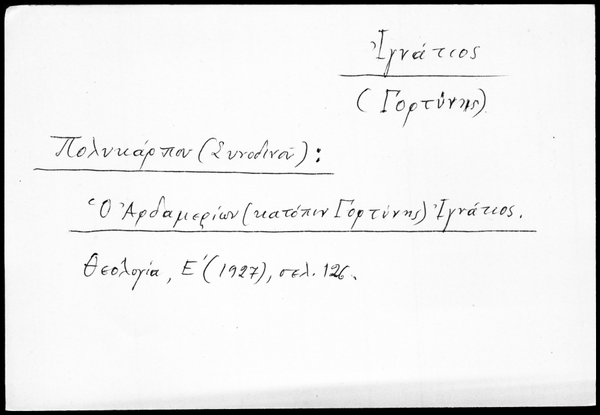 Ἰγνάτιος
(Γορτύνης)
Πολυκάρπου (Συνοδινοῦ):
Ὁ Ἀρδαμερίων (κατόπιν Γορτύνης) Ἰγνάτιος.
Θεολογία, Ε' (1927), σελ. 126.